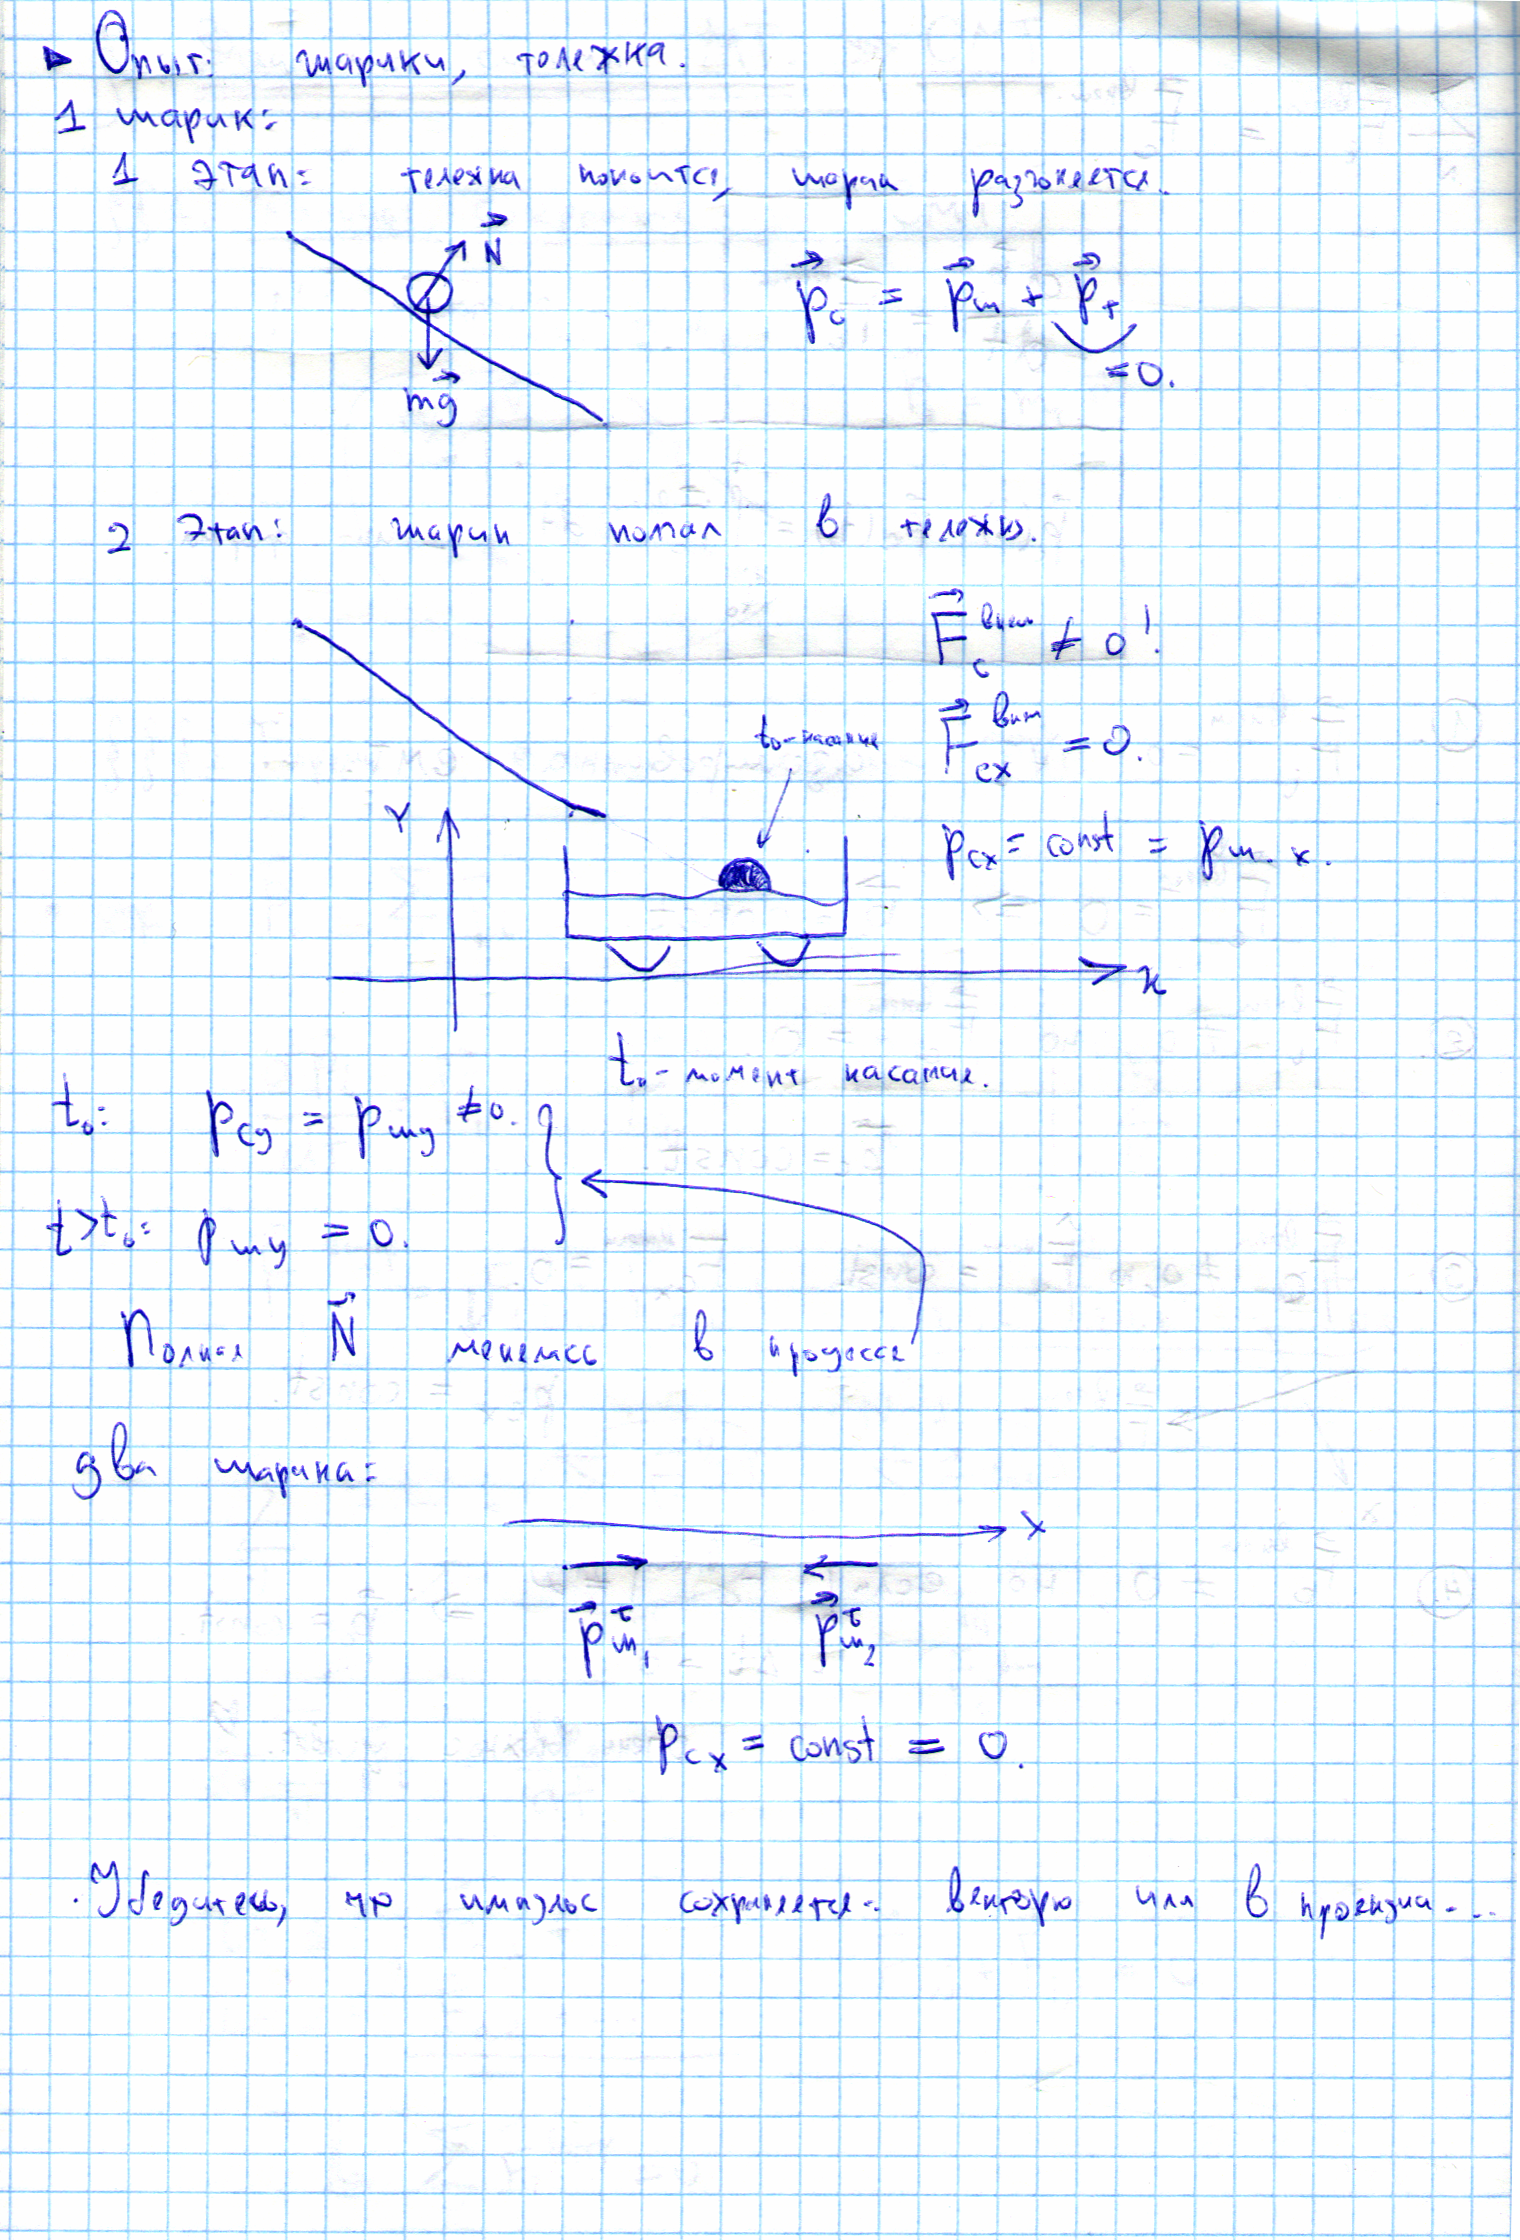 ▸ Опыт: шарики, тележка.
1 шарик:
1 этап: тележка покоится, шарик разгоняется.
N⃗
mg⃗
p⃗с = p⃗ш + p⃗т
= 0.
2 этап: шарик попал в тележку.
F⃗с внеш ≠ 0!
F⃗сx внеш = 0.
t₀ - касание
pсx = const = pш.x.
Y
x
t₀ - момент касания.
t₀: pсy = pшy ≠ 0.
t>t₀: pшy = 0.
Полная N⃗ менялась в процессе
два шарика:
x
p⃗ш₁τ p⃗ш₂τ
pсx = const = 0.
Убедитесь, что импульс сохраняется: вектора или в проекции...